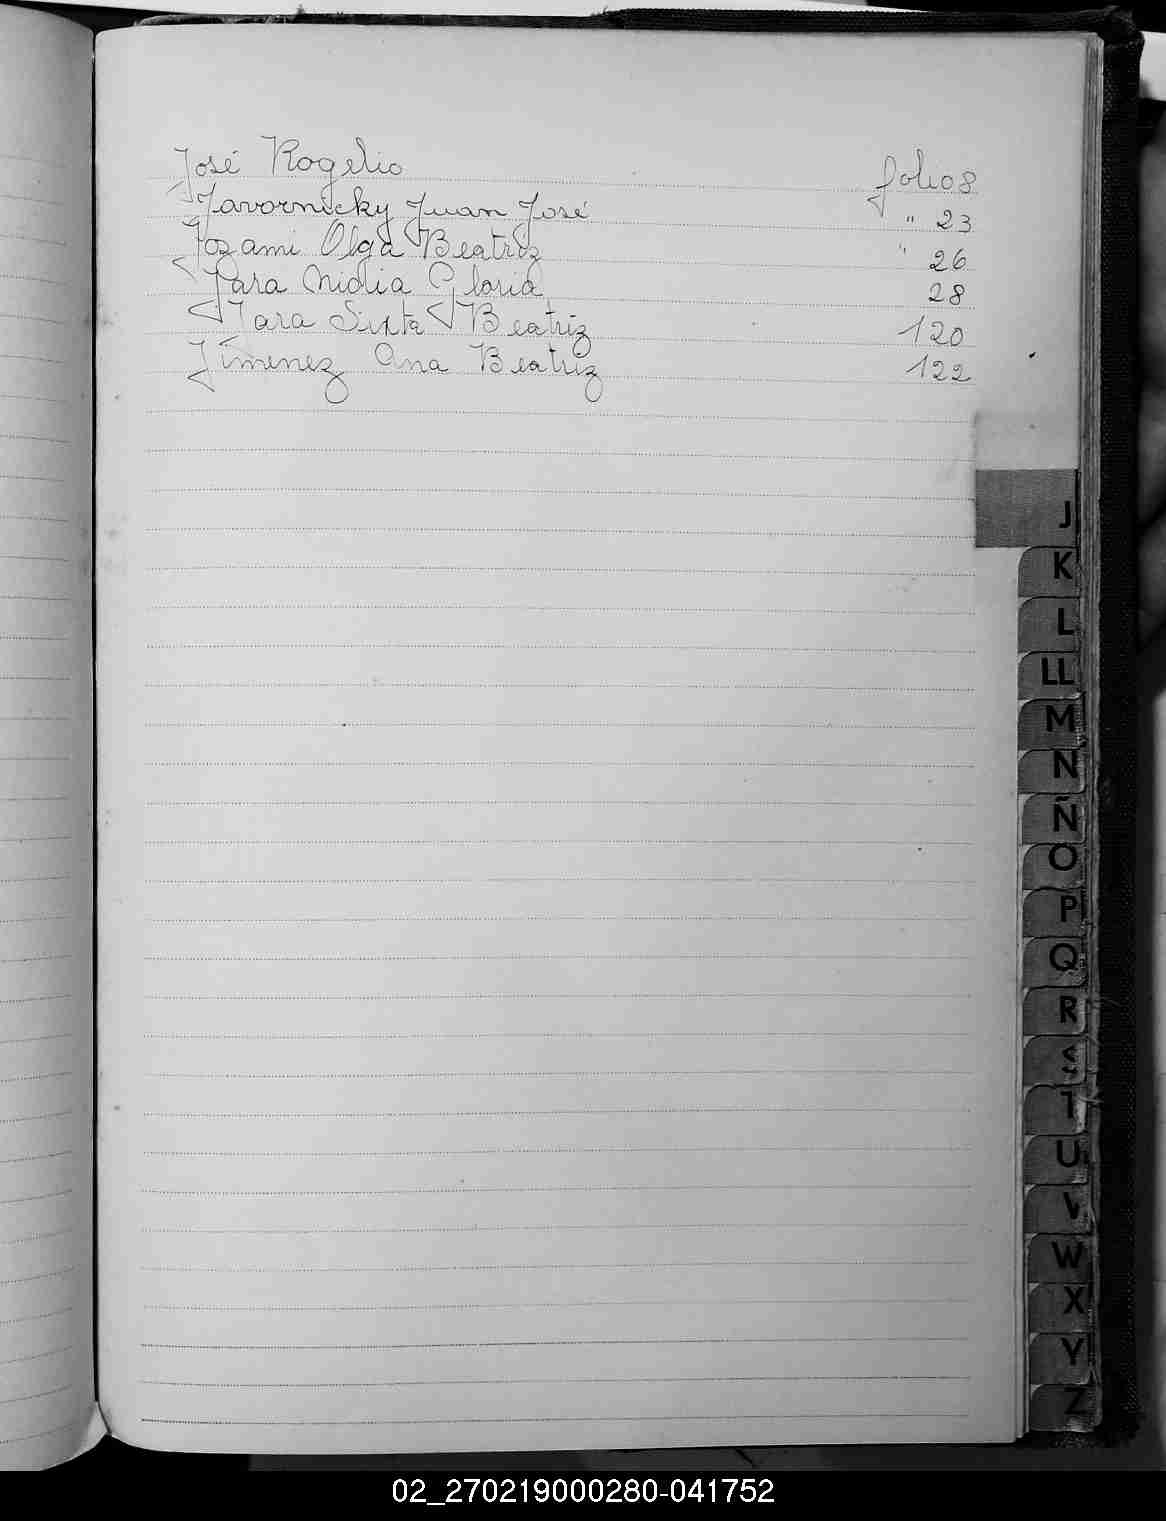 José Rogelio folio 8
Javornicky Juan José " 23
Jozami Olga Beatriz " 26
Jara Nidia Gloria 28
Jara Sixta Beatriz 120
Jimenez Ana Beatriz 122
J
K
L
LL
M
N
Ñ
O
P
Q
R
S
T
U
V
W
X
Y
Z
02_270219000280-041752